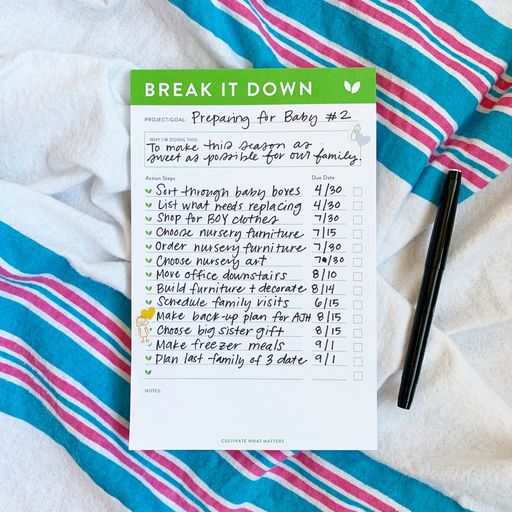 BREAK IT DOWN
PROJECT/GOAL: Preparing for Baby #2
WHY I'M DOING THIS:
To make this season as
sweet as possible for our family.
Action Steps Due Date
Sort through baby boxes 4/30
List what needs replacing 4/30
Shop for BOY clothes 7/30
Choose nursery furniture 7/15
Order nursery furniture 7/30
Choose nursery art 7/30
Move office downstairs 8/10
Build furniture + decorate 8/14
Schedule family visits 6/15
Make back-up plan for AJH 8/15
Choose big sister gift 8/15
Make freezer meals 9/1
Plan last family of 3 date 9/1
NOTES:
CULTIVATE WHAT MATTERS